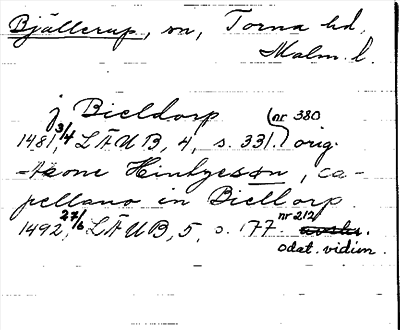 Bjällerup, sn, Torna hd.
Malm. l.
j Bieldorp
1481 3/4 LÄUB, 4, s. 331. (nr 380) orig.
Hinbyesøn, ca-
pellano in Bieldorp.
1492, 27/6 LÄUB, 5, s. 177. nr 212
odat. vidim.